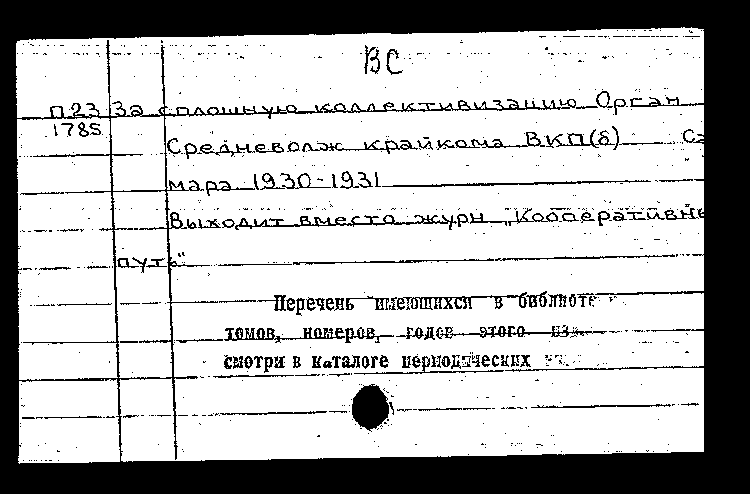 ВС
П23 За сплошную коллективизацию Орган
1785
Средневолж крайкома ВКП(б) Са
мара 1930-1931
Выходит вместо журн „Кооперативны
путь"
Перечень имеющихся в библиоте
томов, номеров, годов этого из
смотри в каталоге периодических